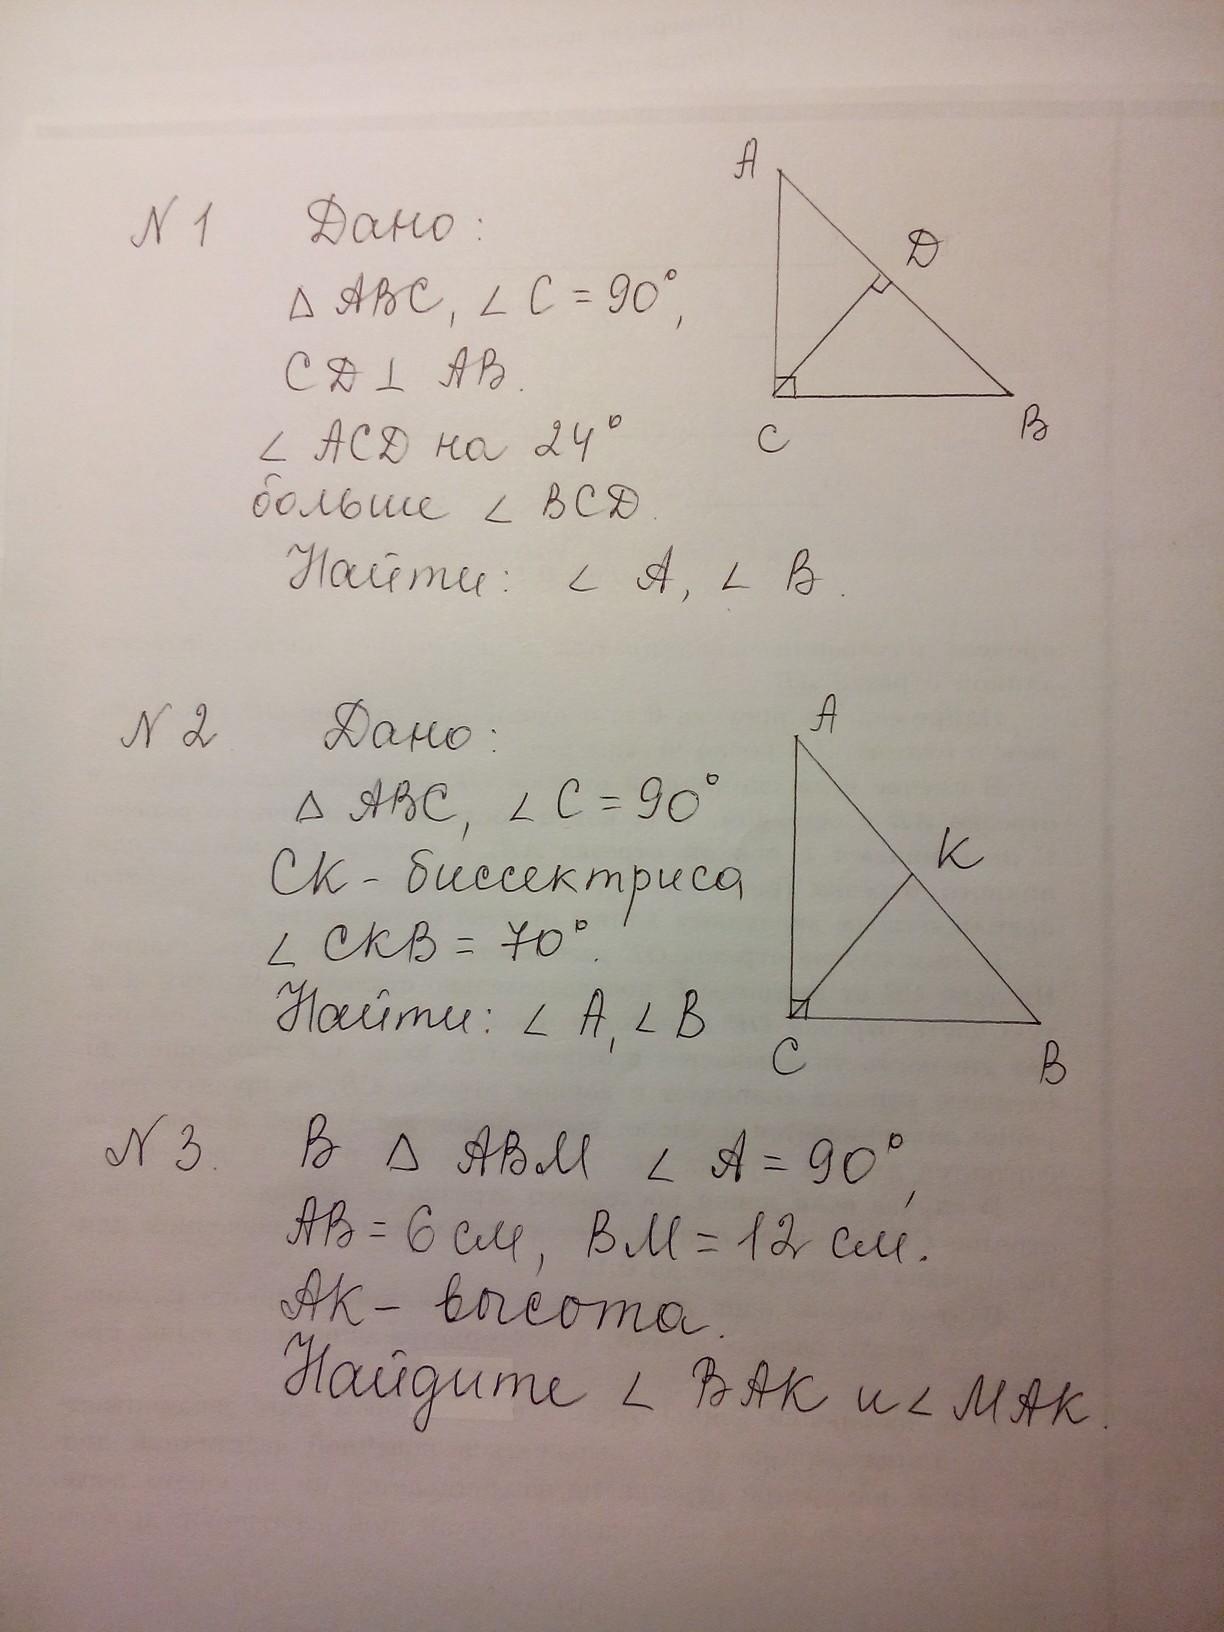 N 1 Дано:
△ ABC, ∠ C = 90°,
CD ⊥ AB.
∠ ACD на 24°
больше ∠ BCD.
Найти: ∠ A, ∠ B.
A
D
C
B
N 2 Дано:
△ ABC, ∠ C = 90°
CK - биссектриса
∠ CKB = 70°.
Найти: ∠ A, ∠ B
A
K
C
B
N 3. В △ ABM ∠ A = 90°,
AB = 6 см, BM = 12 см.
AK - высота.
Найдите ∠ BAK и ∠ MAK.